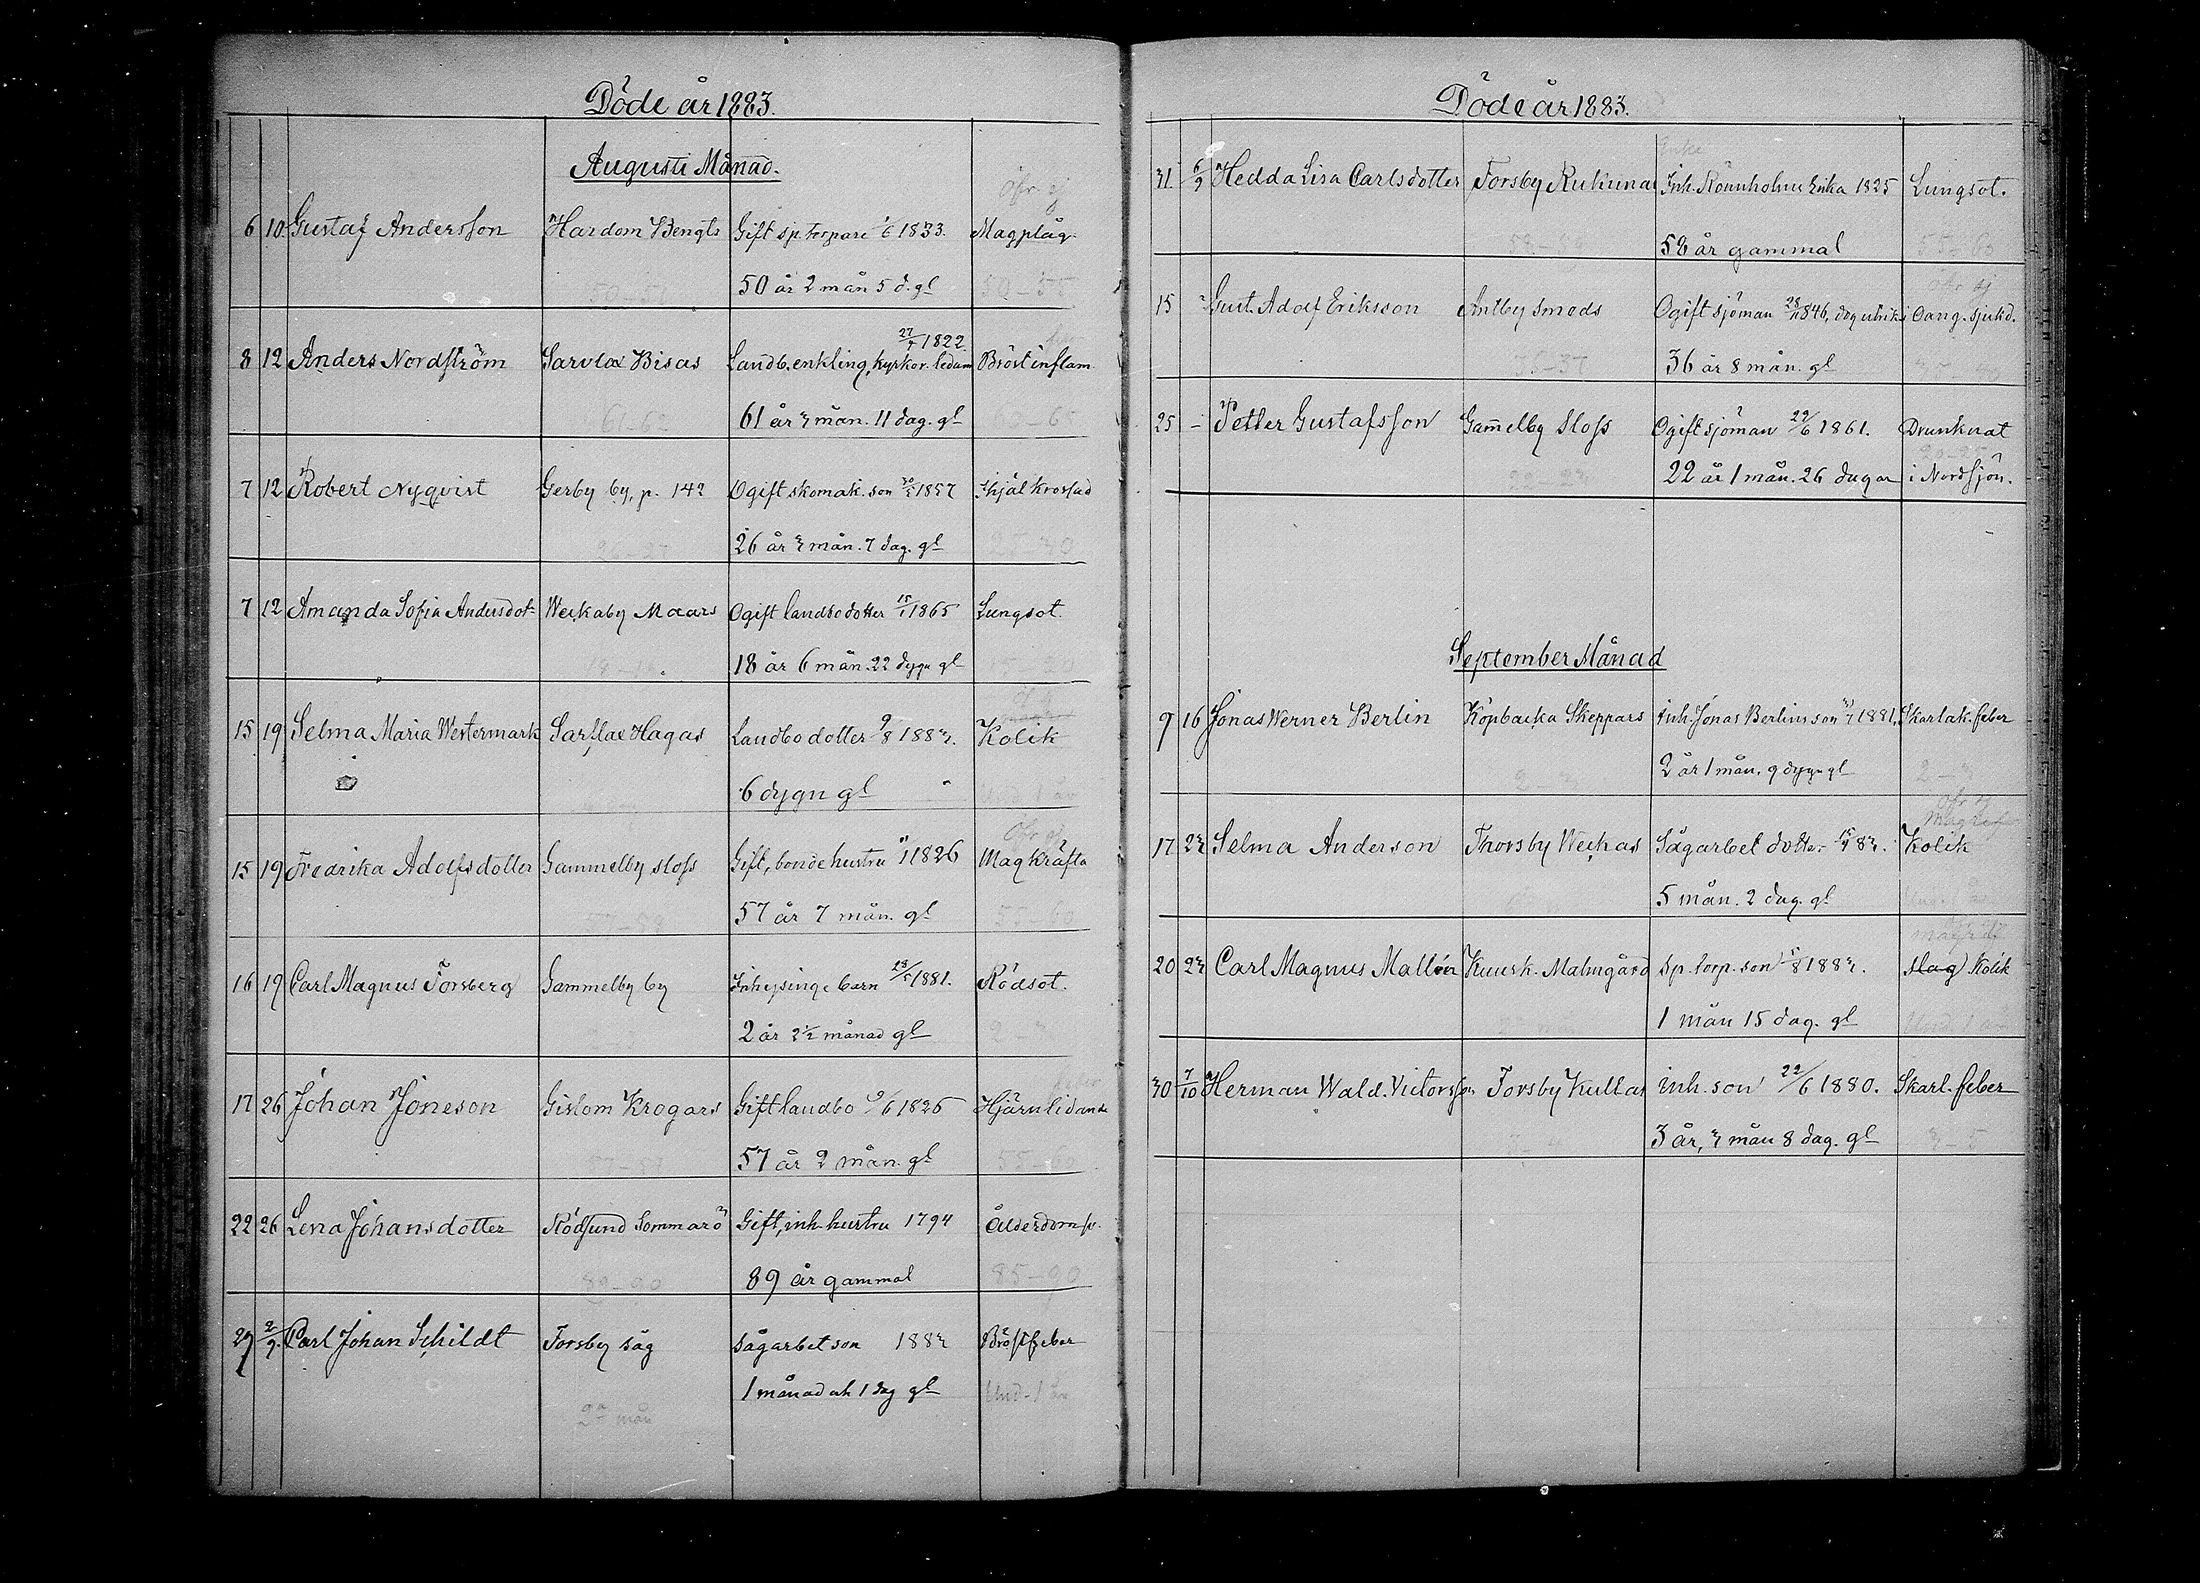 Döde år 1883.
Augusti Månad.
6 10 Gustaf Andersson Hardom Bengts Gift sp. torpare 1/6 1833. Magplåg.
50 år 2 mån 5 d. gl
27/4 1822.
8 12 Anders Nordström Sarvlax Bisas Landb. enkling, kyrkov. ledam Bröstinflam.
61 år 3 mån. 11 dag. gl
7 12 Robert Nyqvist Gerby by, p. 142 Ogift skomak. son 30/4 1857 Ihjälkrossad
26 år 3 mån. 7 dag. gl
7 12 Amanda Sofia Andersdot- Weckaby Maars Ogift landbodotter 15/1 1865 Lungsot.
18 år 6 mån. 22 dygn gl
15 19 Selma Maria Westermark Sarflax Hagas Landbodotter 9/8 1883. Kolik
6 dygn gl
15 19 Fredrika Adolfsdotter Gammelby sloss Gift, bondehustru 1826 Magkräfta
57 år 7 mån. gl
16 19 Carl Magnus Forsberg Gammelby by Inhysinge barn 1881. Rödsot.
2 år 2½ månad gl
17 26 Johan Joneson Gislom Krogars Gift landbo 9/6 1826 Hjärnlidande
57 år 2 mån. gl
22 26 Lena Johansdotter Rödsund Sommarö Gift, inh. hustru 1794 Ålderdomsv.
89–90 89 år gammal 85–90
29 2/9. Carl Johan Schildt Forsby såg sågarbet son 1883 Bröstfeber
1 månad och 1 dag gl Und. 1 år
Döde år 1883.
Enke
31. 6/9 Hedda Lisa Carlsdotter Forsby Kukunas Inh. Rönnholms Enka 1825 Lungsot.
58 år gammal
15 Gust. Adolf Eriksson Antby Smeds Ogift sjöman 28/11 1846, dog utrikes i Oang. sjukd.
36 år 8 mån. gl
25 – Petter Gustafsson Gam̄elby Sloss Ogift sjöman 29/6 1861. Drunknat
22 år 1 mån. 26 dagar i Nordsjön.
September Månad
9 16 Jonas Werner Berlin Köpbacka Skeppars Inh. Jonas Berlins son 31/7 1881. Skarlak. feber
2 år 1 mån. 9 dygn gl
17 23 Selma Anderson Thorsby Weckas Sågarbet dotter 15/4 83. Kolik
5 mån. 2 dag. gl
20 23 Carl Magnus Mallén Kuusk. Malmgård sp. torp. son 5/8 1883. slag Kolik
1 mån 15 dag. gl
30 7/10 Herman Wald. Victorsson Forsby Kullas inh. son 22/6 1880. Skarl. feber
3 år, 3 mån 8 dag. gl